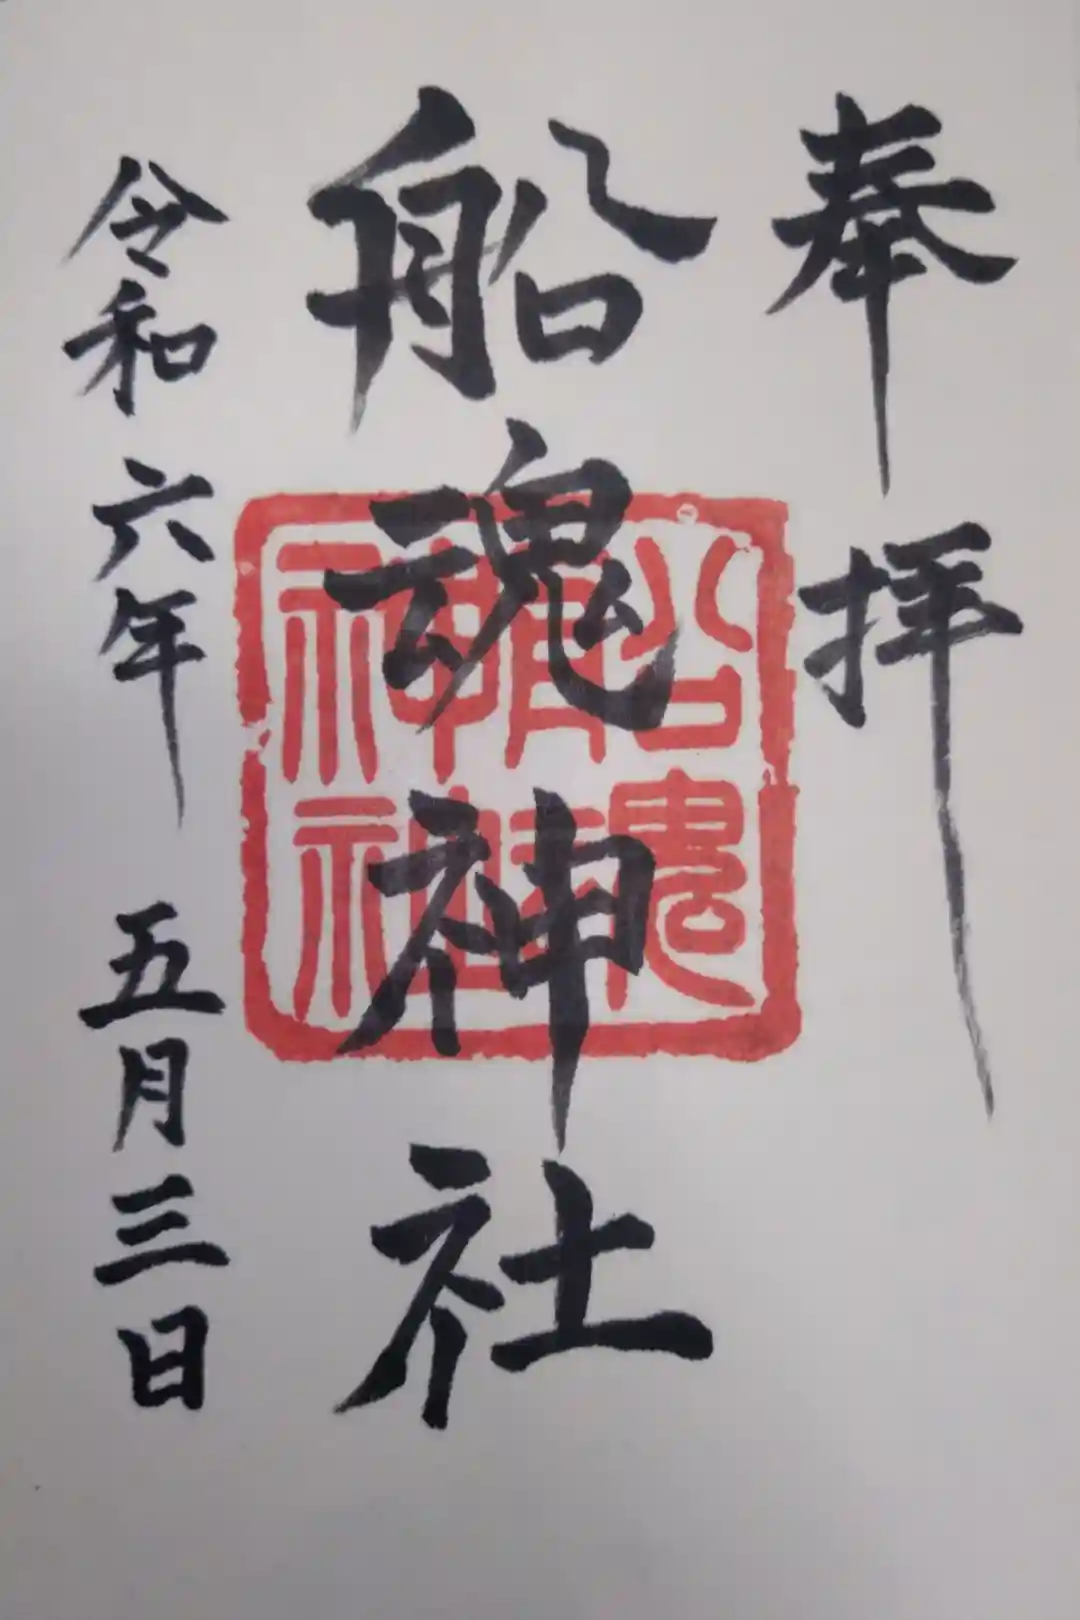 奉拝
船魂神社
船魂神社
令和六年 五月三日